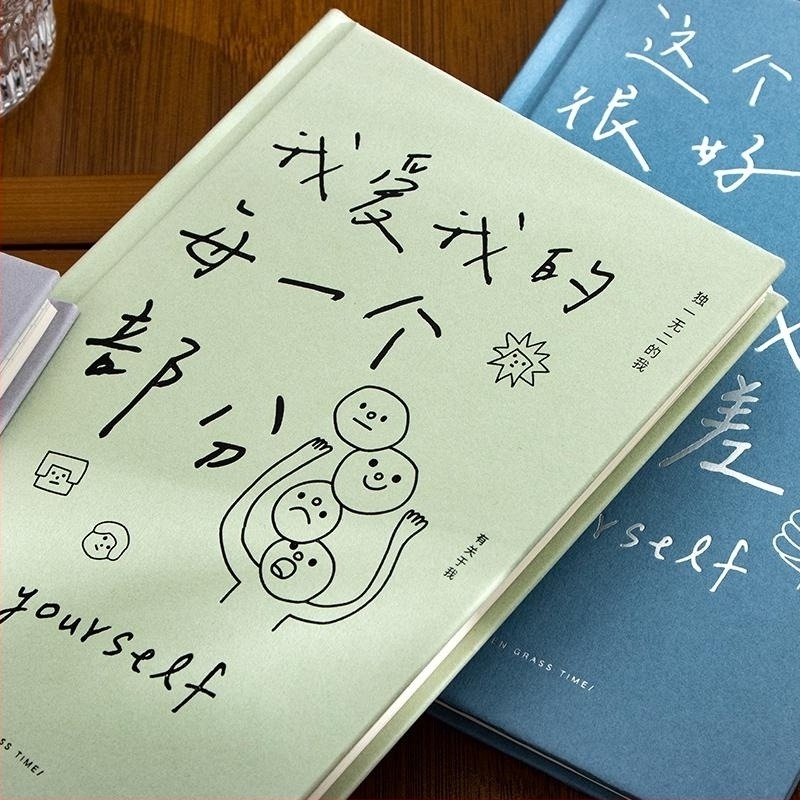 我爱我的
每一个
部分
独一无二的我
有关于我
yourself
SS TIME/
这个
很好
差
rself
EN GRASS TIME/